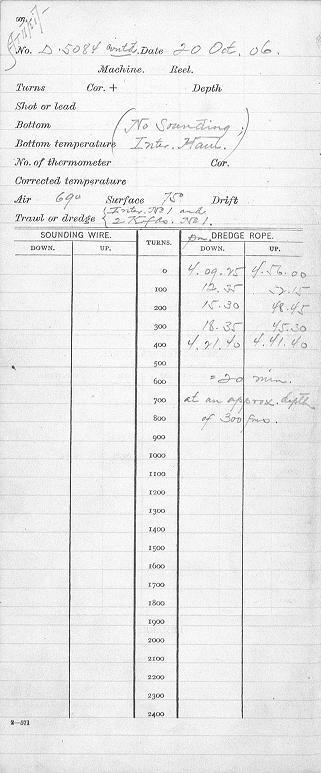 507
No. D.5084 contd. Date 20 Oct. 06.
Machine. Reel.
Turns Cor. + Depth
Shot or lead
Bottom (No Sounding;
Bottom temperature Inter. Haul.)
No. of thermometer Cor.
Corrected temperature
Air 69° Surface 75° Drift
Trawl or dredge {Inter. No 1 and
2 No. 1.
SOUNDING WIRE. TURNS. pm. DREDGE ROPE.
DOWN. UP. DOWN. UP.
0 4.09.25 4.56.00
100 12.35 52.15
200 15.30 48.45
300 18.35 45.30
400 4.21.40 4.41.40
500
600 = 20 min.
700 at an approx. depth
800 of 300 fms.
900
1000
1100
1200
1300
1400
1500
1600
1700
1800
1900
2000
2100
2200
2300
2400
2—571